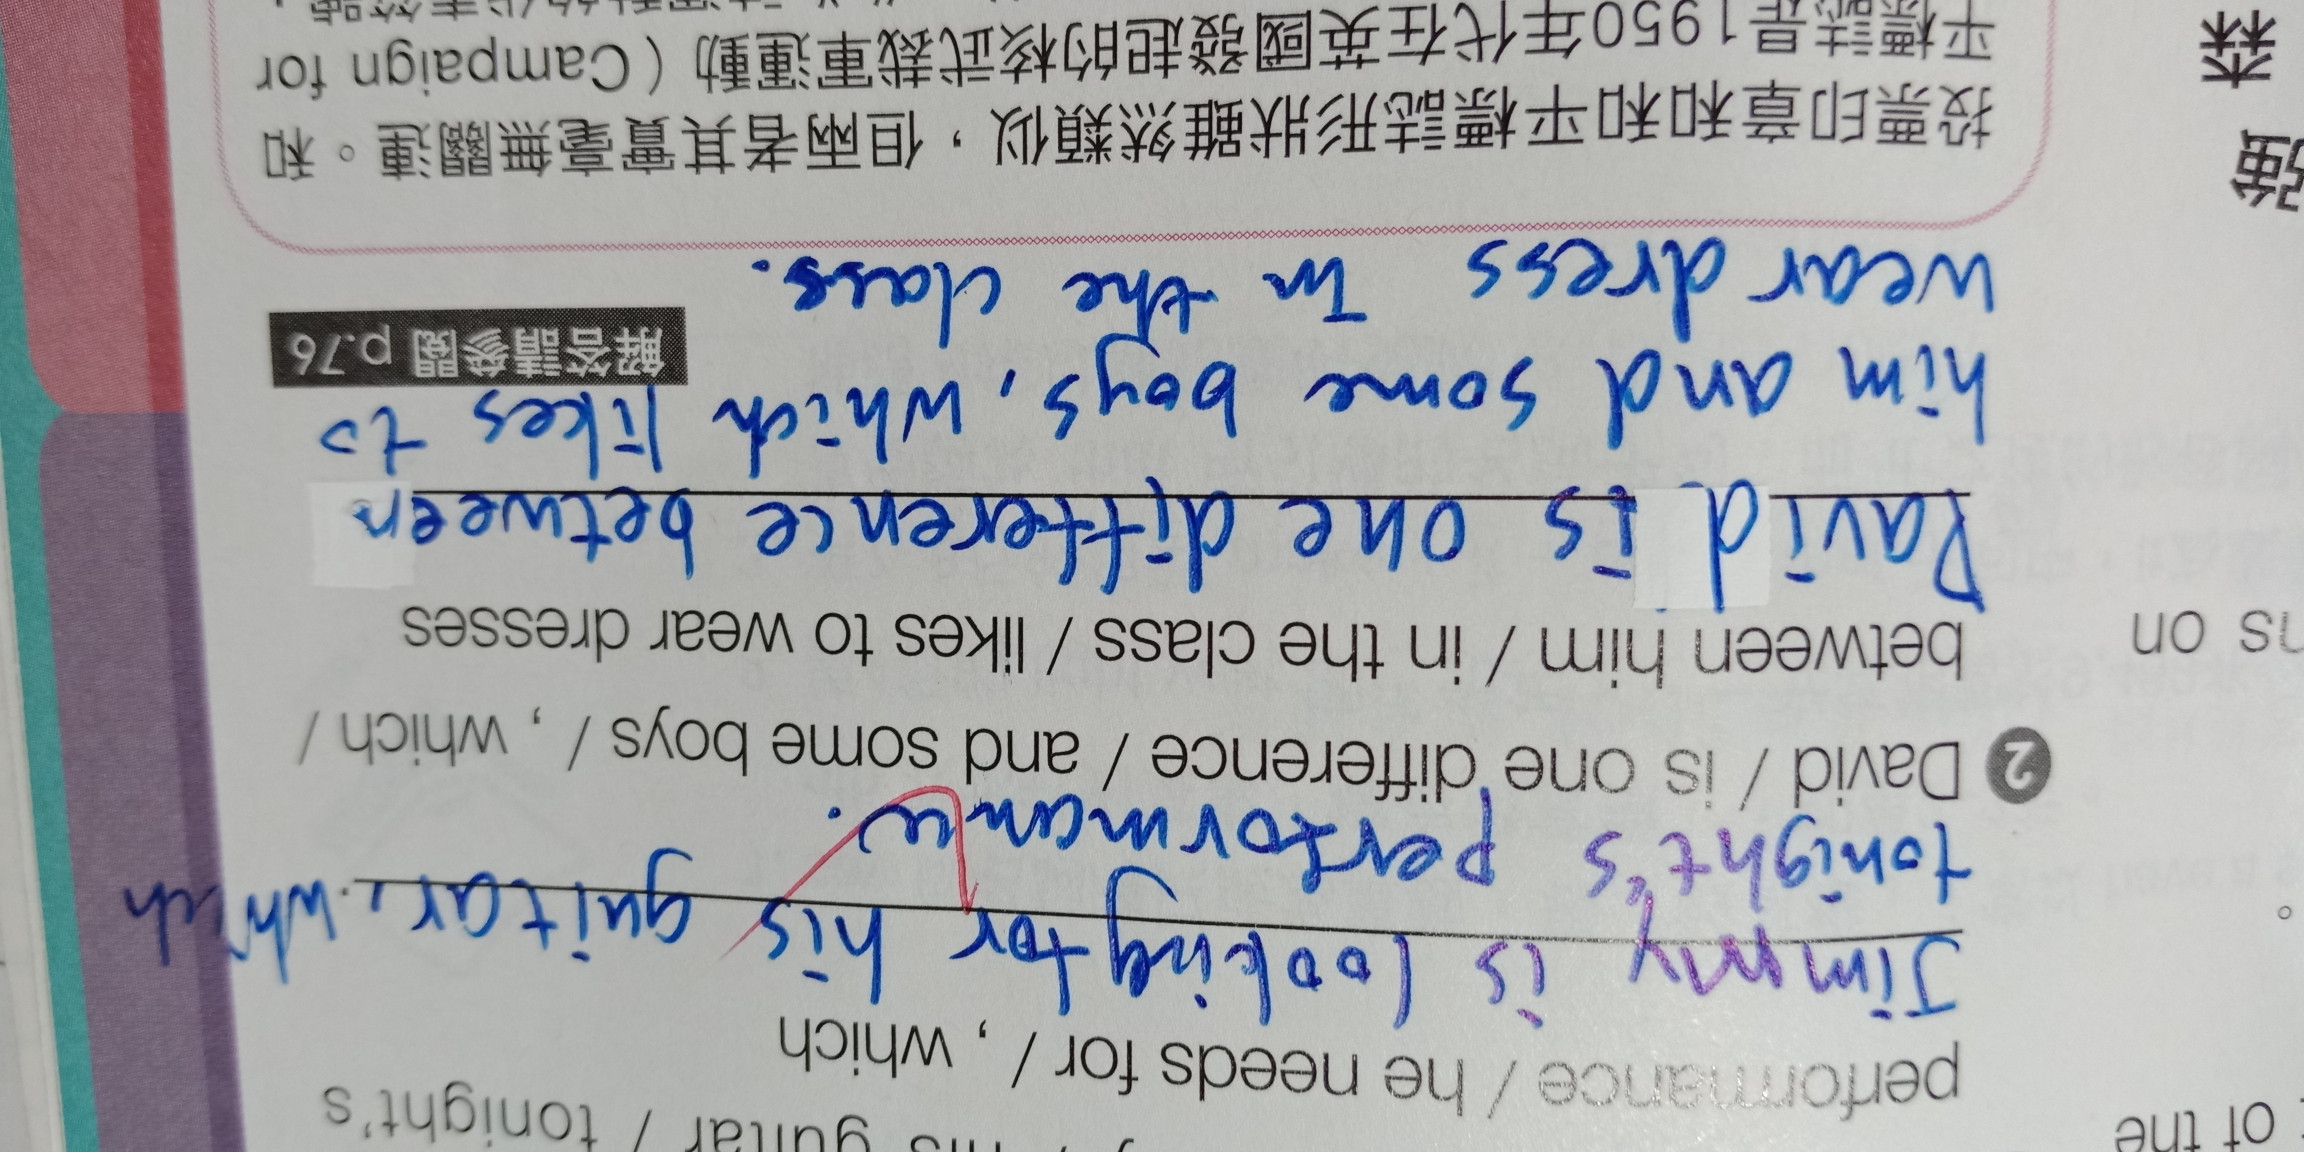 tonight's
performance / he needs for / , which
Jimmy is looking for his guitar, which
tonight's performance.
2 David / is one difference / and some boys / , which /
between him / in the class / likes to wear dresses
David is one difference between
him and some boys, which likes to
wear dress in the class.
解答請參閱 p.76
投票印章和和平標誌形狀雖然類似，但兩者其實毫無關連。和
平標誌是1950年代在英國發起的核武裁軍運動（Campaign for
of the
ns on
強
森